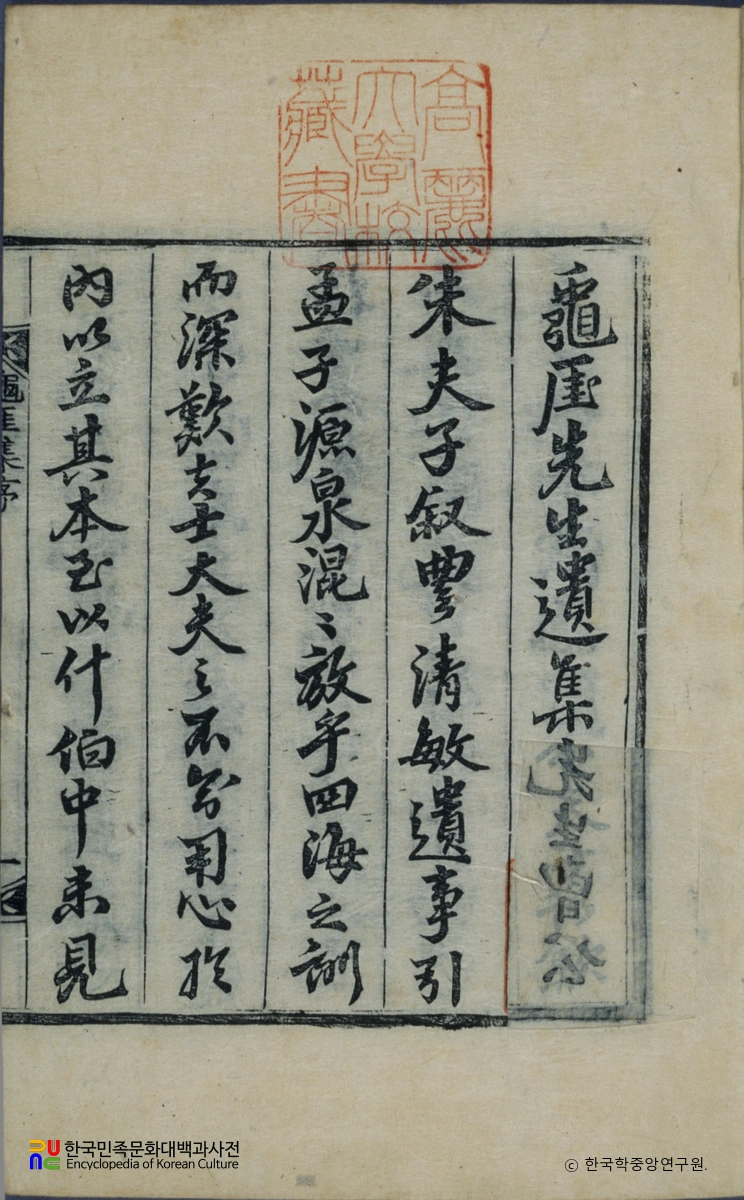 高麗
大學校
藏書
龜厓先生遺集
朱夫子叙豐清敏遺事引
孟子源泉混〻放乎四海之訓
而深歎士大夫之不用心於
內以立其本至以什伯中未見
龜厓集序
一
한국민족문화대백과사전
Encyclopedia of Korean Culture
© 한국학중앙연구원.